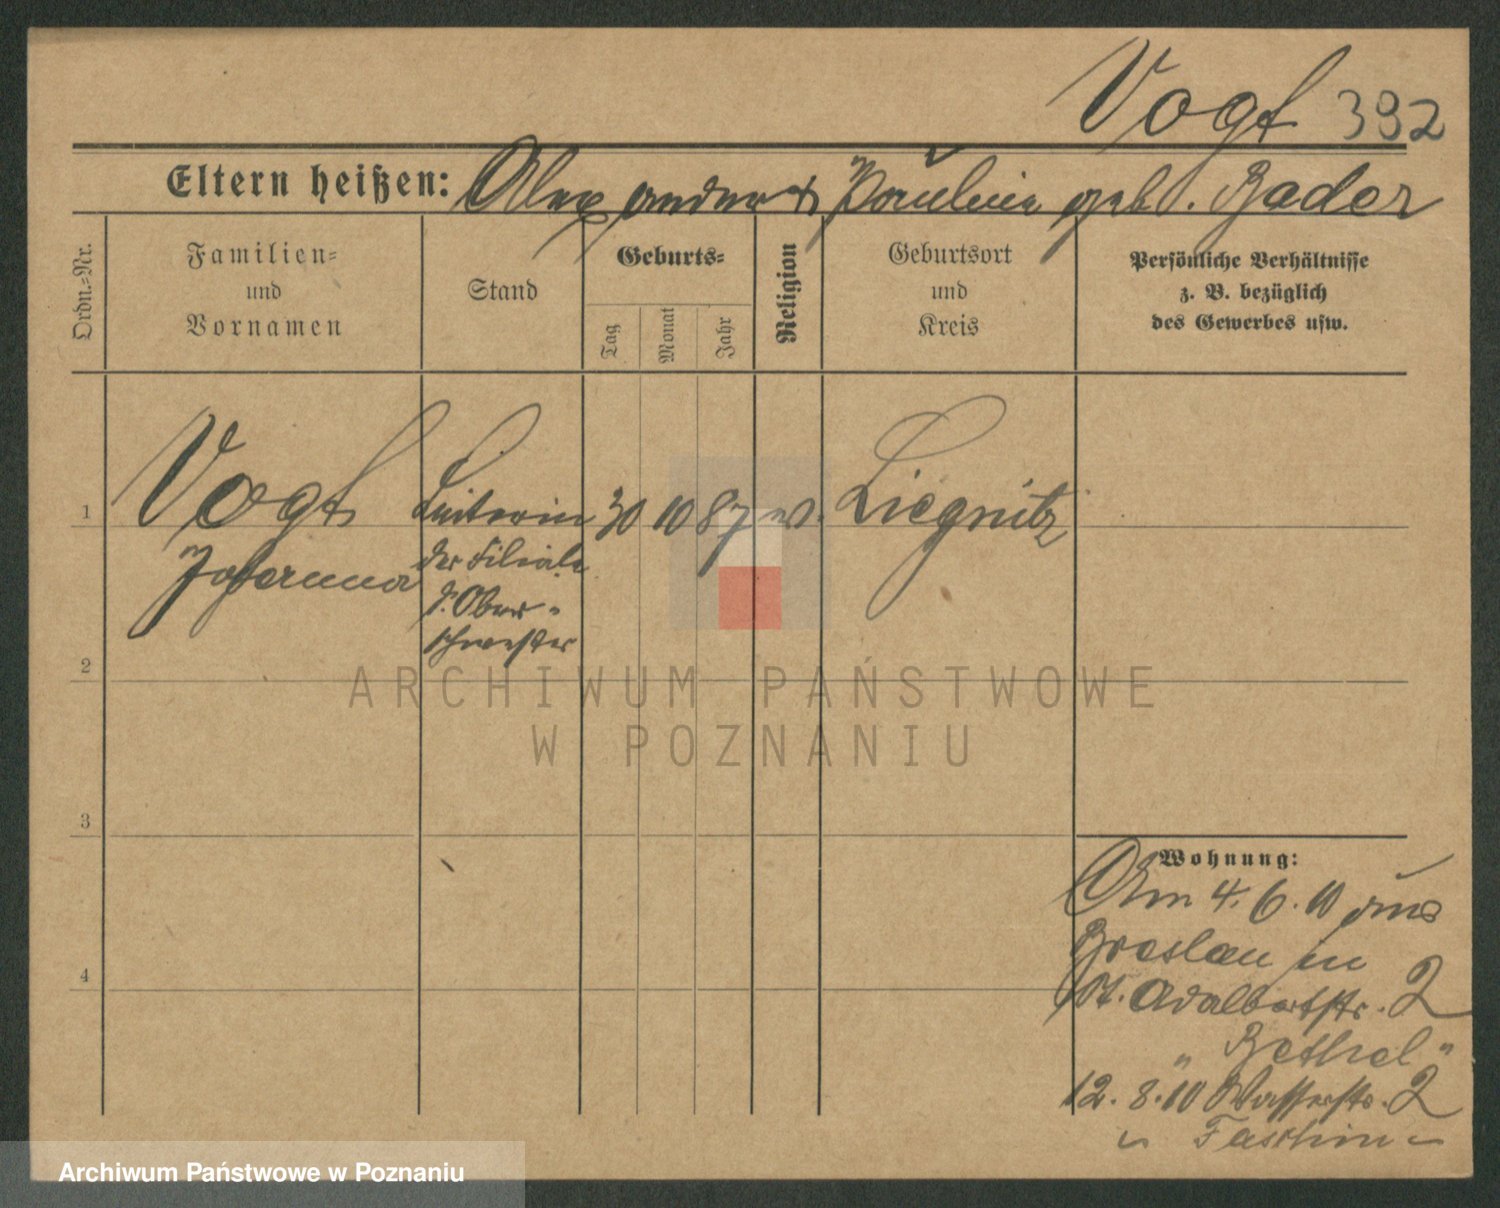 Vogt 392
Eltern heißen: Alexander u. Pauline geb. Bader
Ordn.=Nr.
Familien=
und
Vornamen
Stand
Geburts=
Tag
Monat
Jahr
Religion
Geburtsort
und
Kreis
Persönliche Verhältnisse
z. B. bezüglich
des Gewerbes usw.
1
Vogt
Johanna
Leiterin
der Filiale
d. Ober-
schwester
30 10 87
Liegnitz
2
ARCHIWUM PAŃSTWOWE
W POZNANIU
3
4
Wohnung:
Am 4. 6. 10 aus
Breslau in
St. Adalbertstr. 2
"Bethel"
12. 8. 10 Wasserstr. 2
Archiwum Państwowe w Poznaniu